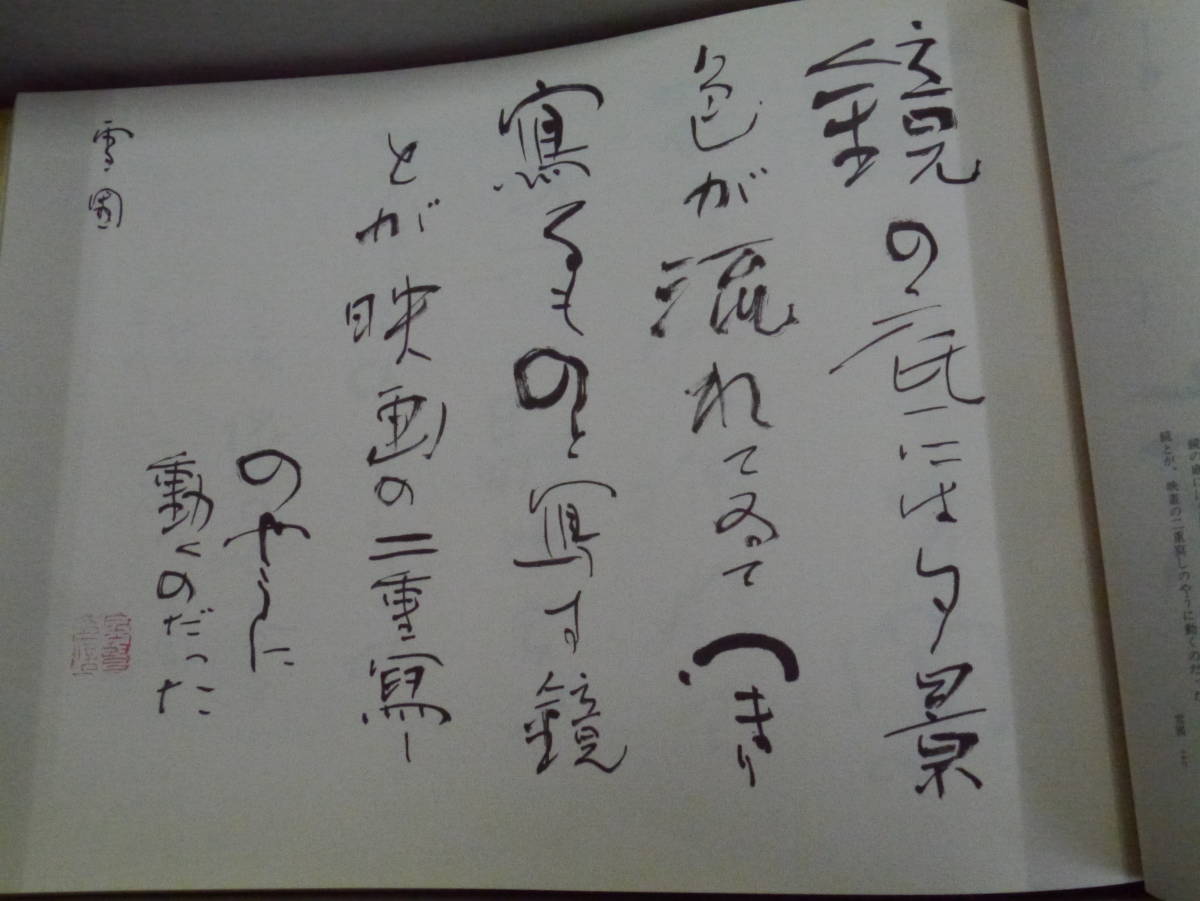 鏡の底には夕景
色が流れてゐてつまり
寫るものと寫す鏡
とが映画の二重寫し
のやうに
動くのだった
雪國
鏡とが、映畫の二重寫しのやうに動くのだった
雪國 より